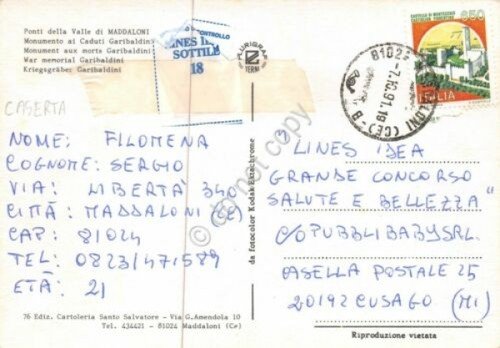 Ponti della Valle di MADDALONI
Monumento ai Caduti Garibaldini
Monument aux morts Garibaldini
War memorial Garibaldini
Kriegsgräber Garibaldini
CASERTA
CONTROLLO
LINES IDEA
SOTTILE
18
PLURIGRAF
TERNI
650
ITALIA
7.10.91.18
NOME: FILOMENA
COGNOME: SERGIO
VIA: LIBERTÀ 340
CITTÀ: MADDALONI (CE)
CAP: 81024
TEL: 0823/471589
ETÀ: 21
76 Ediz. Cartoleria Santo Salvatore - Via G. Amendola 10
Tel. 434421 - 81024 Maddaloni (Ce)
da fotocolor Kodak Ektachrome
"LINES IDEA
GRANDE CONCORSO
SALUTE E BELLEZZA"
C/O PUBBLIBABY SRL.
CASELLA POSTALE 25
20192 CUSAGO (MI)
Riproduzione vietata
not copy